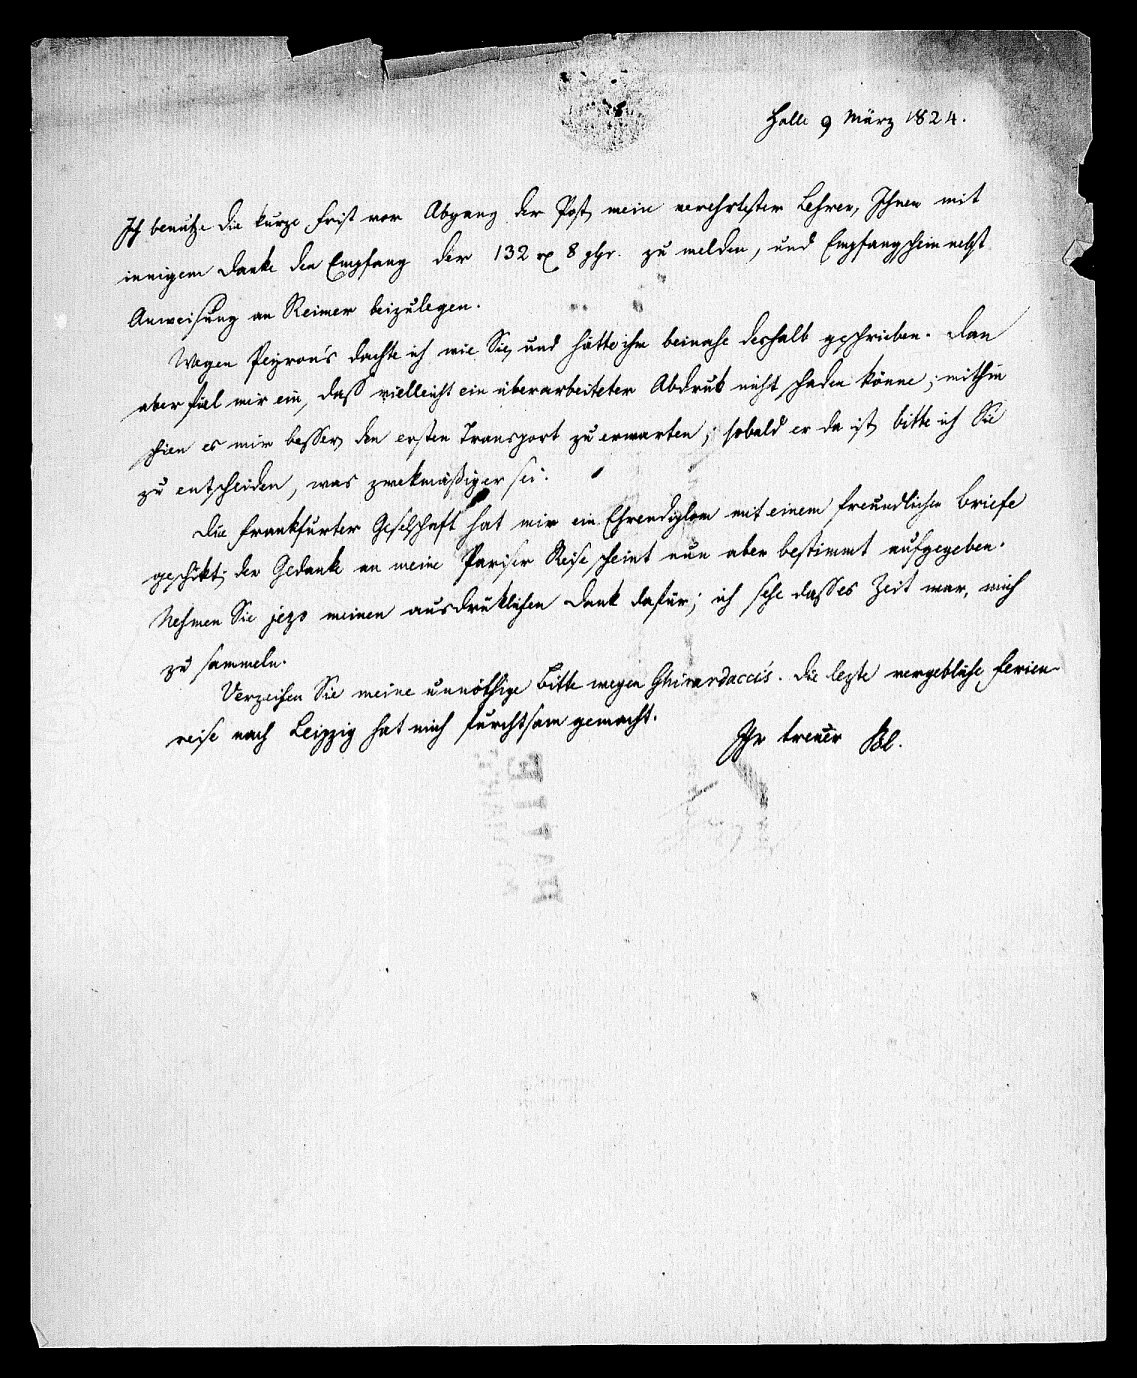 Halle 9 März 1824.
Ich benutze die kurze Frist vor Abgang der Post, mein verehrtester Lehrer, Ihnen mit
innigem Danke den Empfang der 132 rx 8 gHr. zu melden, und Empfangschein nebst
Anweisung an Reimer beizulegen.
Wegen Peyron's dachte ich wie Sie, und hätte ihm beinahe deshalb geschrieben. Dan
aber fiel mir ein, daß vielleicht ein überarbeiteter Abdruk nicht schaden könne; mithin
schien es mir besser, den ersten Transport zu erwarten; sobald er da ist, bitte ich Sie
zu entscheiden, was zwekmäßiger sei.
Die Frankfurter Geselschaft hat mir ein Ehrendiplom mit einem freundlichen Briefe
geschikt; der Gedanke an meine Pariser Reise scheint nun aber bestimmt aufgegeben.
Nehmen Sie jezo meinen ausdrüklichen Dank dafür; ich sehe dass es Zeit war, mich
zu sammeln.
Verzeihen Sie meine unnöthige Bitte wegen Ghirardacci's. Die lezte vergebliche Ferien-
reise nach Leipzig hat mich furchtsam gemacht.
Ihr treuer Bl.